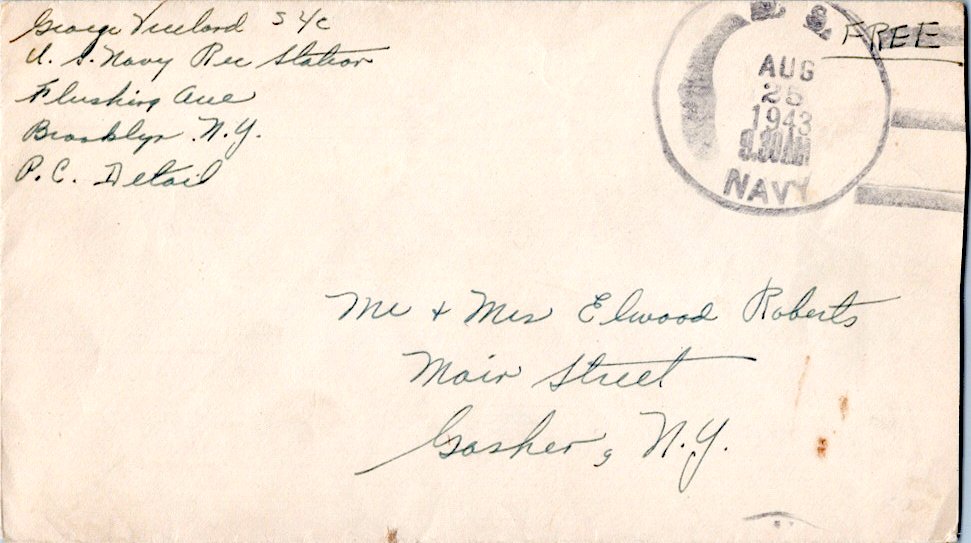 George Vreeland S 2/c
U. S. Navy Rec Station
Flushing Ave
Brooklyn N.Y.
P.C. Detail
FREE
U. S.
AUG
25
1943
9.30AM
NAVY
Mr + Mrs Elwood Roberts
Main Street
Goshen, N.Y.